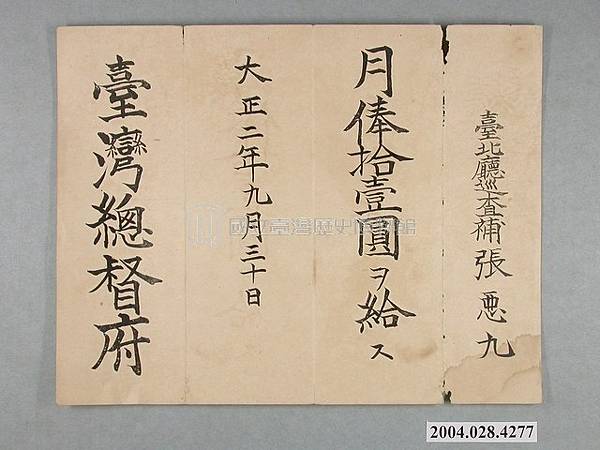 臺北廳巡査補張悪九
月俸拾壹圓ヲ給ス
大正二年九月三十日
臺灣總督府
國立臺灣歷史博物館
2004.028.4277